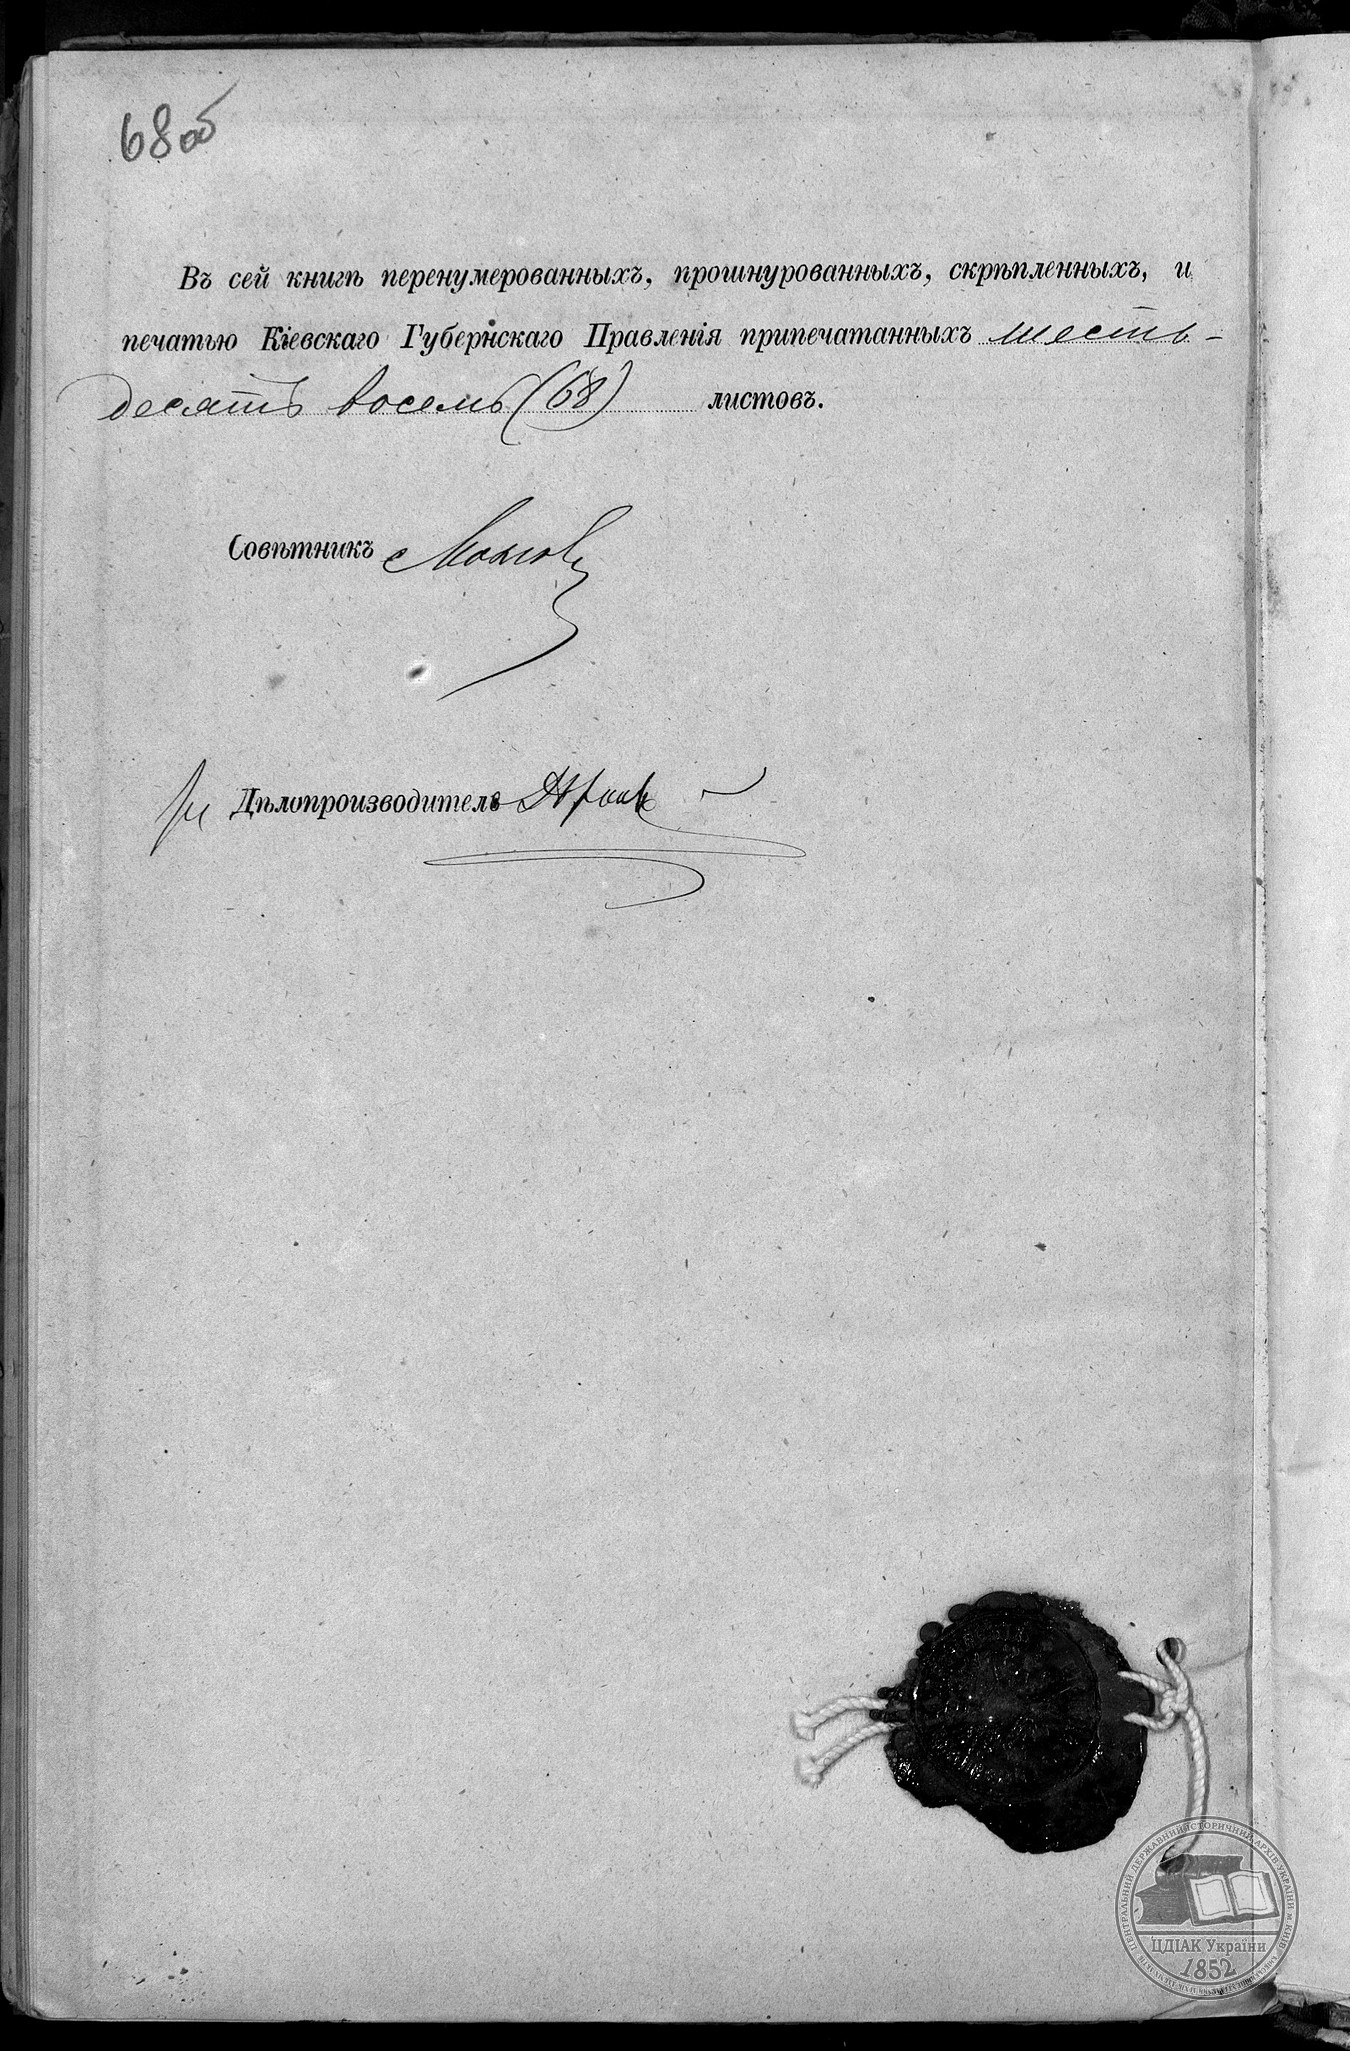 68об
Въ сей книгѣ перенумерованныхъ, прошнурованныхъ, скрѣпленныхъ, и
печатью Кіевскаго Губернскаго Правленія припечатанныхъ шесть-
десятъ восемь (68) листовъ.
Совѣтникъ
Дѣлопроизводитель
ЦЕНТРАЛЬНИЙ ДЕРЖАВНИЙ ІСТОРИЧНИЙ АРХІВ УКРАЇНИ м. КИЇВ
ЦДІАК України
1852